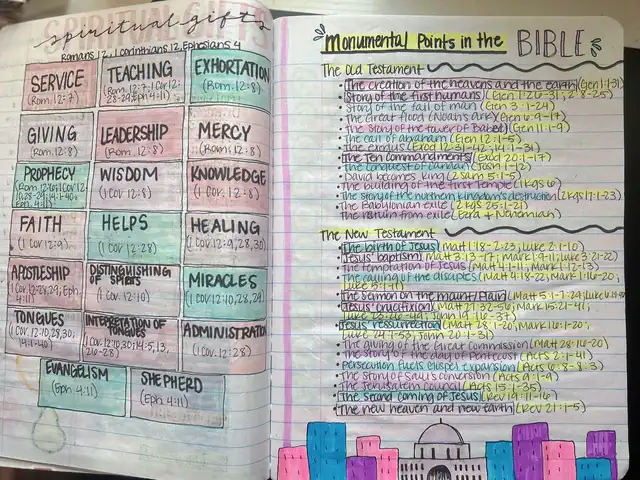 SPIRITUAL GIFTS
spiritual gifts
Romans 12, 1 Corinthians 12, Ephesians 4
SERVICE
(Rom. 12:7)
TEACHING
(Rom. 12:7, 1 Cor 12:
28-29, Eph 4:11)
EXHORTATION
(Rom. 12:8)
GIVING
(Rom. 12:8)
LEADERSHIP
(Rom. 12:8)
MERCY
(Rom 12:8)
PROPHECY
(Rom. 12:6, 1 Cor 12:
10, 28-29, 14:1-40,
Eph. 4:11)
WISDOM
(1 Cor. 12:8)
KNOWLEDGE
(1 Cor. 12:8)
FAITH
(1 Cor. 12:9)
HELPS
(1 Cor. 12:28)
HEALING
(1 Cor. 12:9, 28, 30)
APOSTLESHIP
(1 Cor. 12:28-29, Eph.
4:11)
DISTINGUISHING
OF SPIRITS
(1 Cor. 12:10)
MIRACLES
(1 Cor. 12:10, 28, 29)
TONGUES
(1 Cor. 12:10, 28, 30,
14:1-40)
INTERPRETATION OF
TONGUES
(1 Cor. 12:10, 30, 14:5, 13,
26-28)
ADMINISTRATION
(1 Cor. 12:28)
EVANGELISM
(Eph. 4:11)
SHEPHERD
(Eph. 4:11)
Monumental Points in the BIBLE
The Old Testament
The creation of the heavens and the earth (Gen 1:1-31)
Story of the first humans (Gen 1:26-31, 2:8-25)
Story of the fall of man (Gen 3:1-24)
The Great flood (Noah's ark) (Gen 6:9-17)
The story of the tower of Babel (Gen 11:1-9)
The call of abraham (Gen 12:1-5)
The exodus (Exod 12:31-42; 14:1-31)
The Ten commandments (Exod 20:1-17)
The conquest of canaan (Josh 1-12)
David becomes king (2 Sam 5:1-5)
The building of the first Temple (1 Kgs 6)
The story of the northern Kingdom's destruction (2 Kgs 17:1-23)
The Babylonian exile (2 Kgs 25:1-21)
The return from exile (Ezra + Nehemiah)
The New Testament
The birth of Jesus (Matt 1:18-2:23; Luke 2:1-10)
Jesus' baptism (Matt 3:13-17; Mark 1:9-11; Luke 3:21-22)
The temptation of Jesus (Matt 4:1-11; Mark 1:12-13)
The calling of the disciples (Matt 4:18-22; Mark 1:16-20;
Luke 5:1-11)
The sermon on the mount/Plain (Matt 5:1-7:29; Luke
Jesus' crucifixion (Matt 27:32-56; Mark 15:21-41;
Luke 23:26-49; John 19:16-37)
Jesus' ressurrection (Matt 28:1-20; Mark 16:1-20;
Luke 24:1-53; John 20:1-31)
The giving of the Great Commission (Matt 28:16-20)
The story of the day of Pentecost (Acts 2:1-41)
Persecution fuels gospel expansion (Acts 6:8-8:3)
The Story of Saul's conversion (Acts 9:1-9)
The Jerusalem Council (Acts 15:1-35)
The second coming of Jesus (Rev 19:11-16)
The new heaven and new earth (Rev 21:1-5)